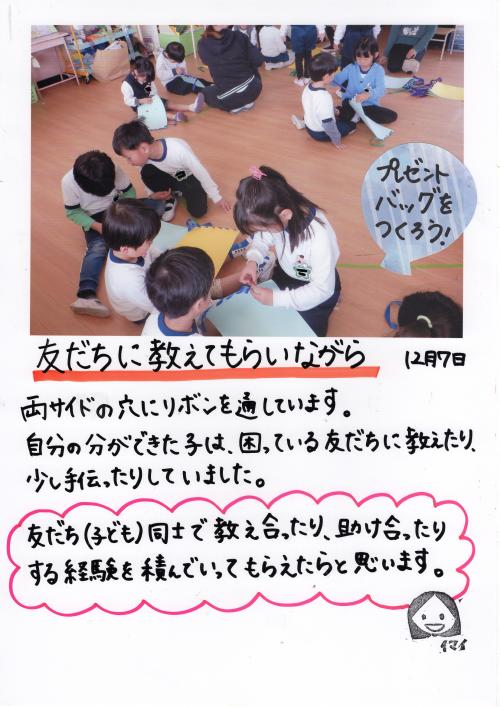 プレゼント
バッグを
つくろう!
友だちに教えてもらいながら 12月7日
両サイドの穴にリボンを通しています。
自分の分ができた子は、困っている友だちに教えたり、
少し手伝ったりしていました。
友だち(子ども)同士で教え合ったり、助け合ったり
する経験を積んでいってもらえたらと思います。
イマイ